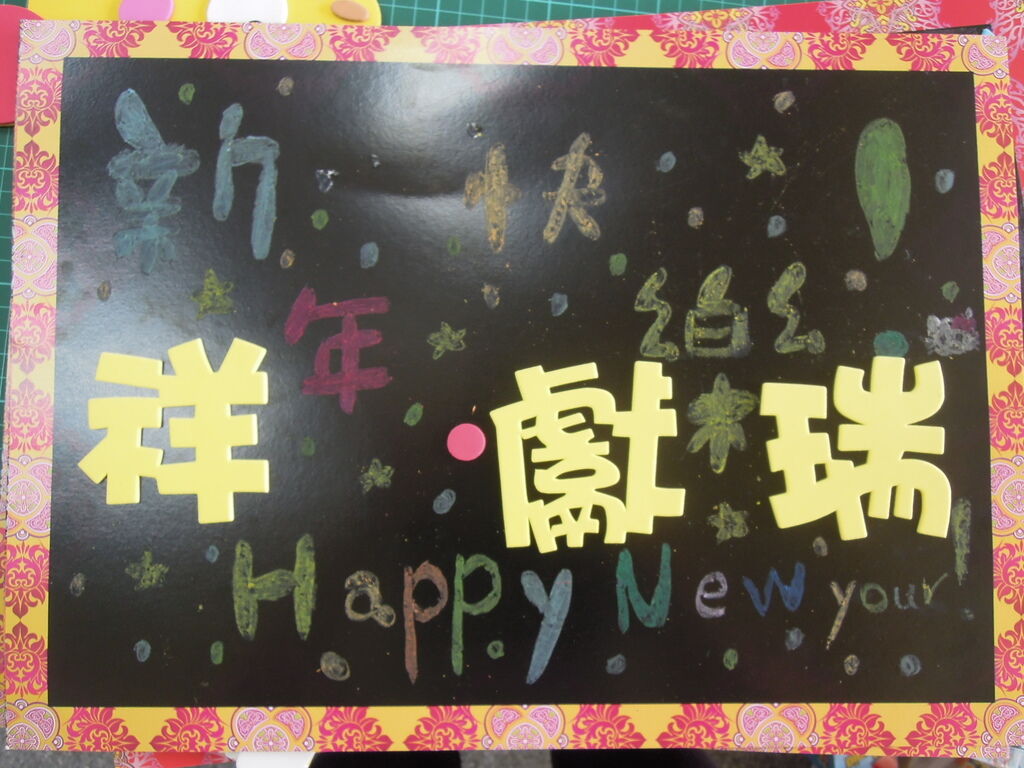 新年快樂!
祥獻瑞
Happy New your!